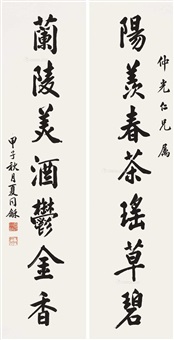 仲光仁兄属
陽羨春茶瑤草碧
蘭陵美酒鬱金香
甲子秋月夏同龢